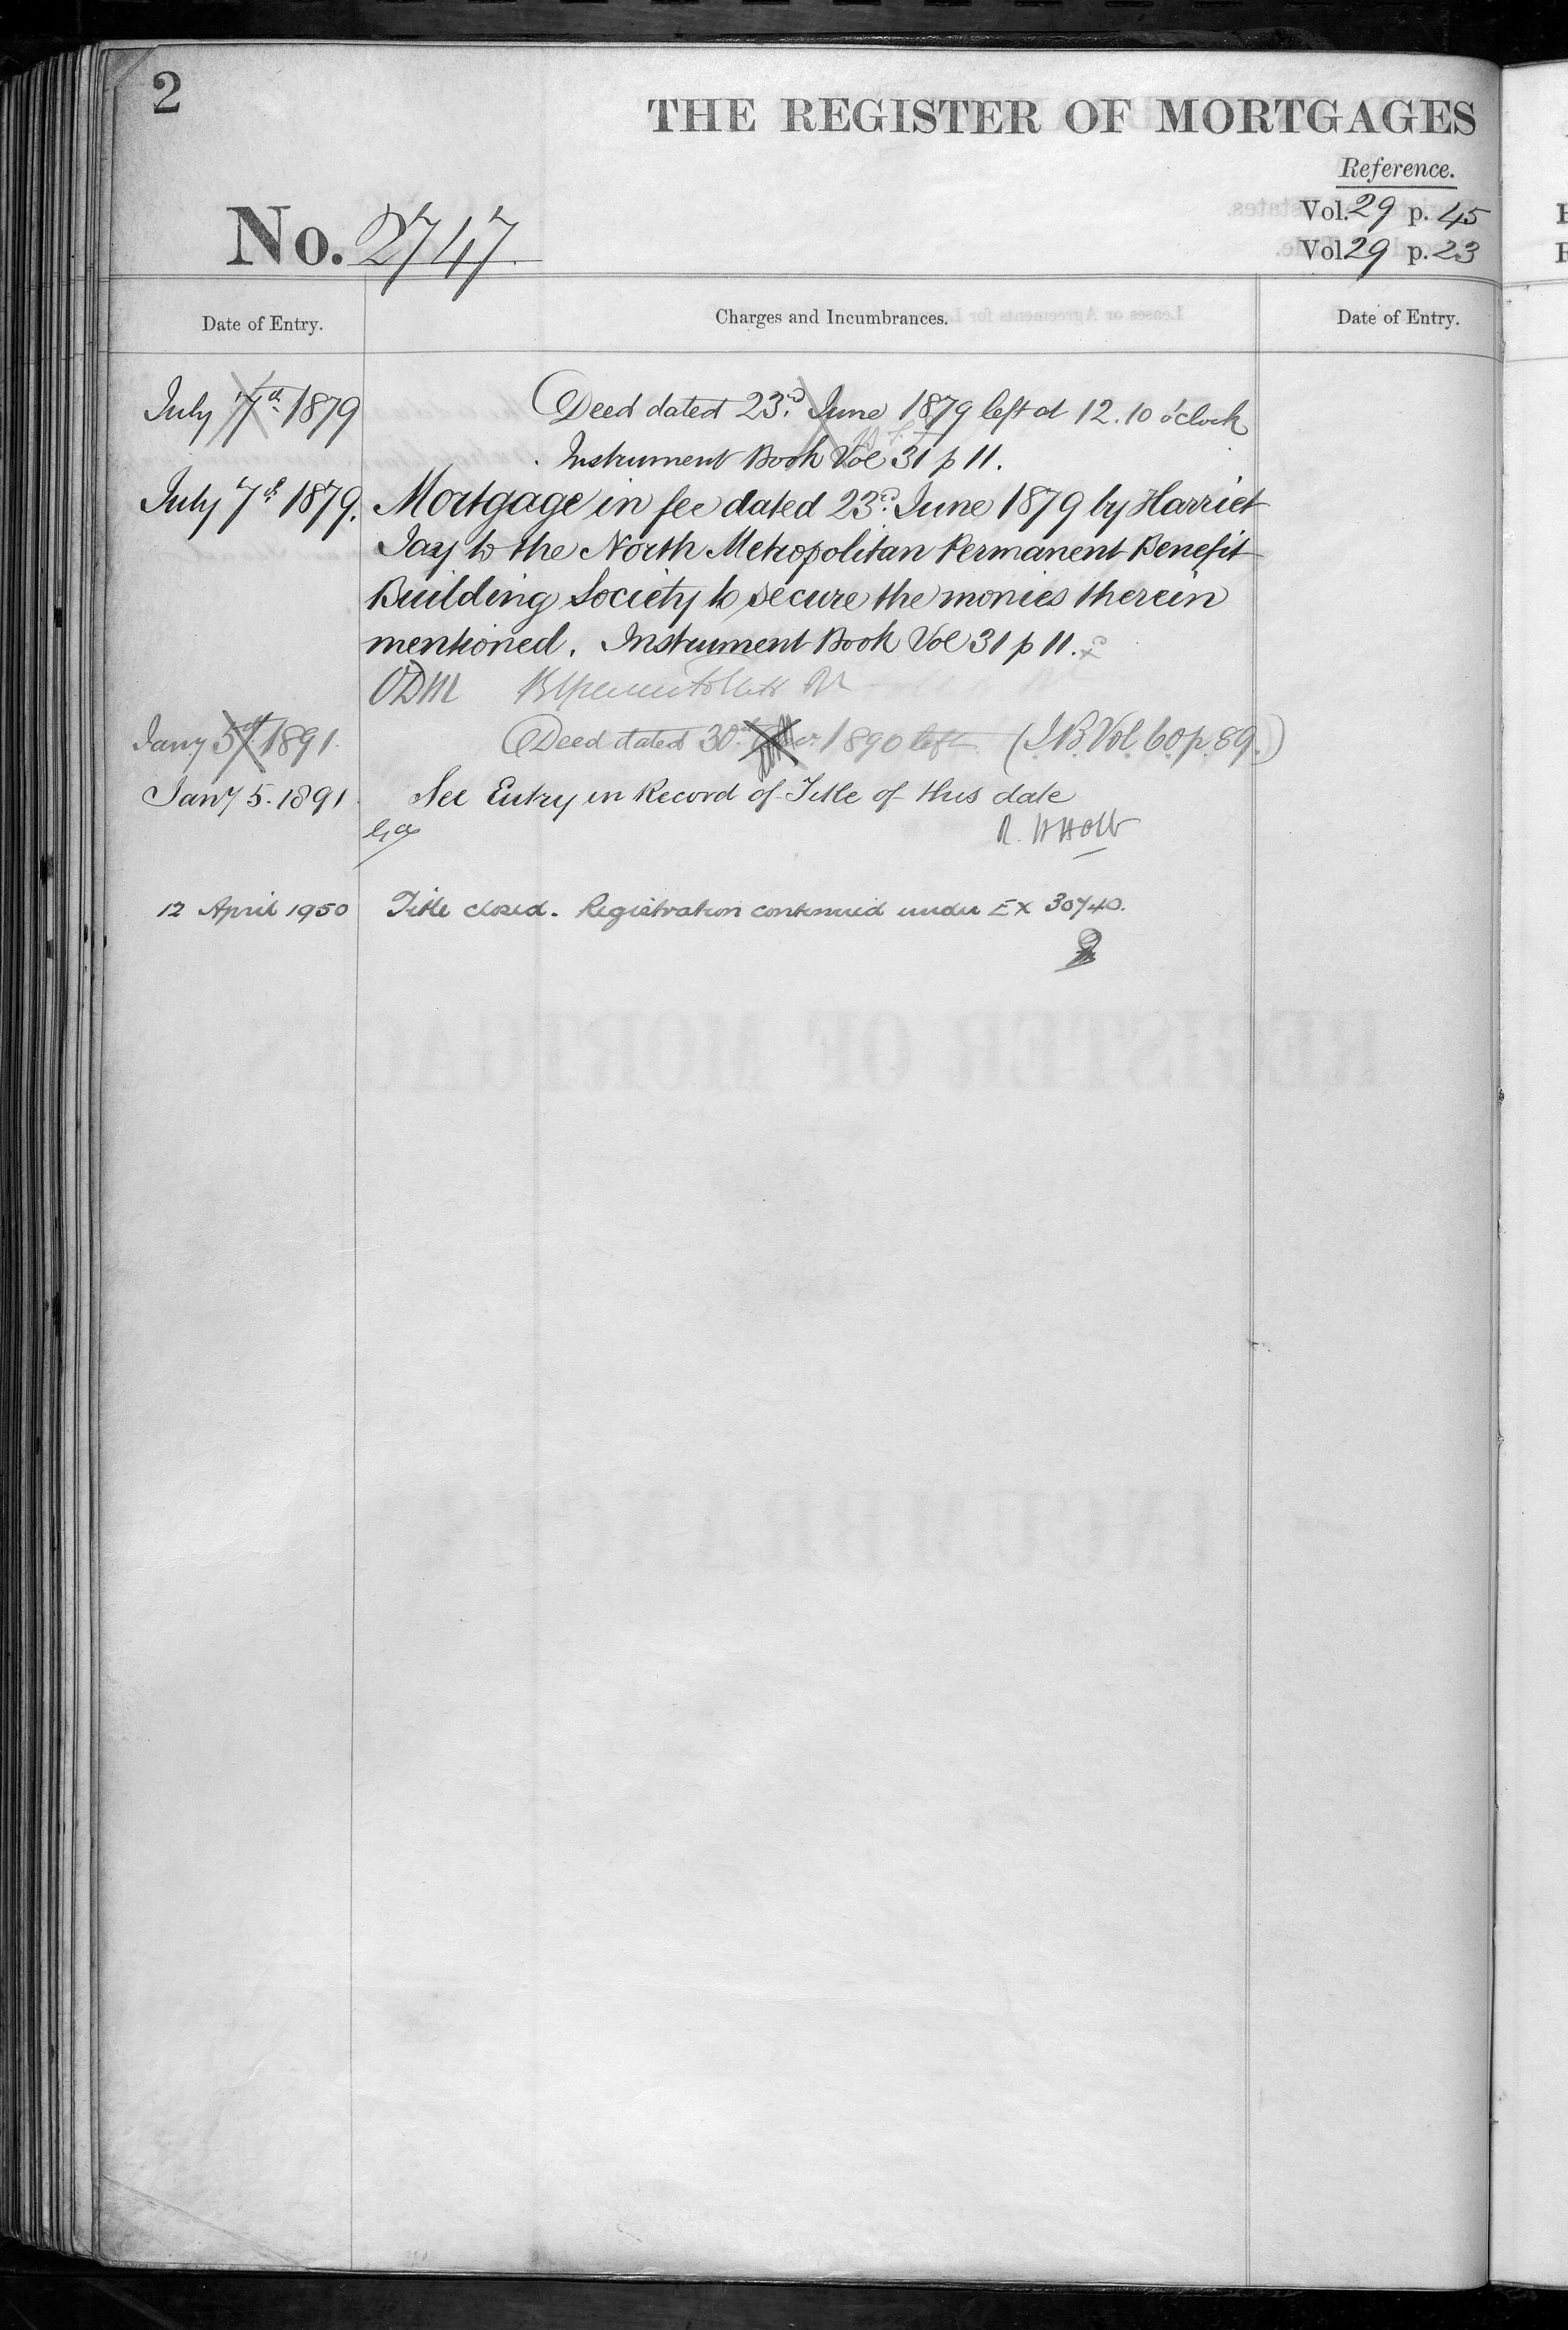 2
THE REGISTER OF MORTGAGES
Reference.
Vol. 29 p. 45
No. 2747.
Vol 29 p. 23
Date of Entry.
Charges and Incumbrances.
Date of Entry.
July 7th 1879
Deed dated 23rd June 1879 left at 12.10 o'clock
Instrument Book Vol 31 p 11.
July 7th 1879.
Mortgage in fee dated 23rd June 1879 by Harriet
Jay to the North Metropolitan Permanent Benefit
Building Society to secure the monies therein
mentioned. Instrument Book Vol 31 p 11.
ODM
Jany 5th 1891.
Deed dated 30th 1890 left (I.B. Vol. 60 p. 89.)
Jany 5. 1891
See Entry in Record of Title of this date
R. H Holt
12 April 1950
Title closed. Registration continued under EX 30740.